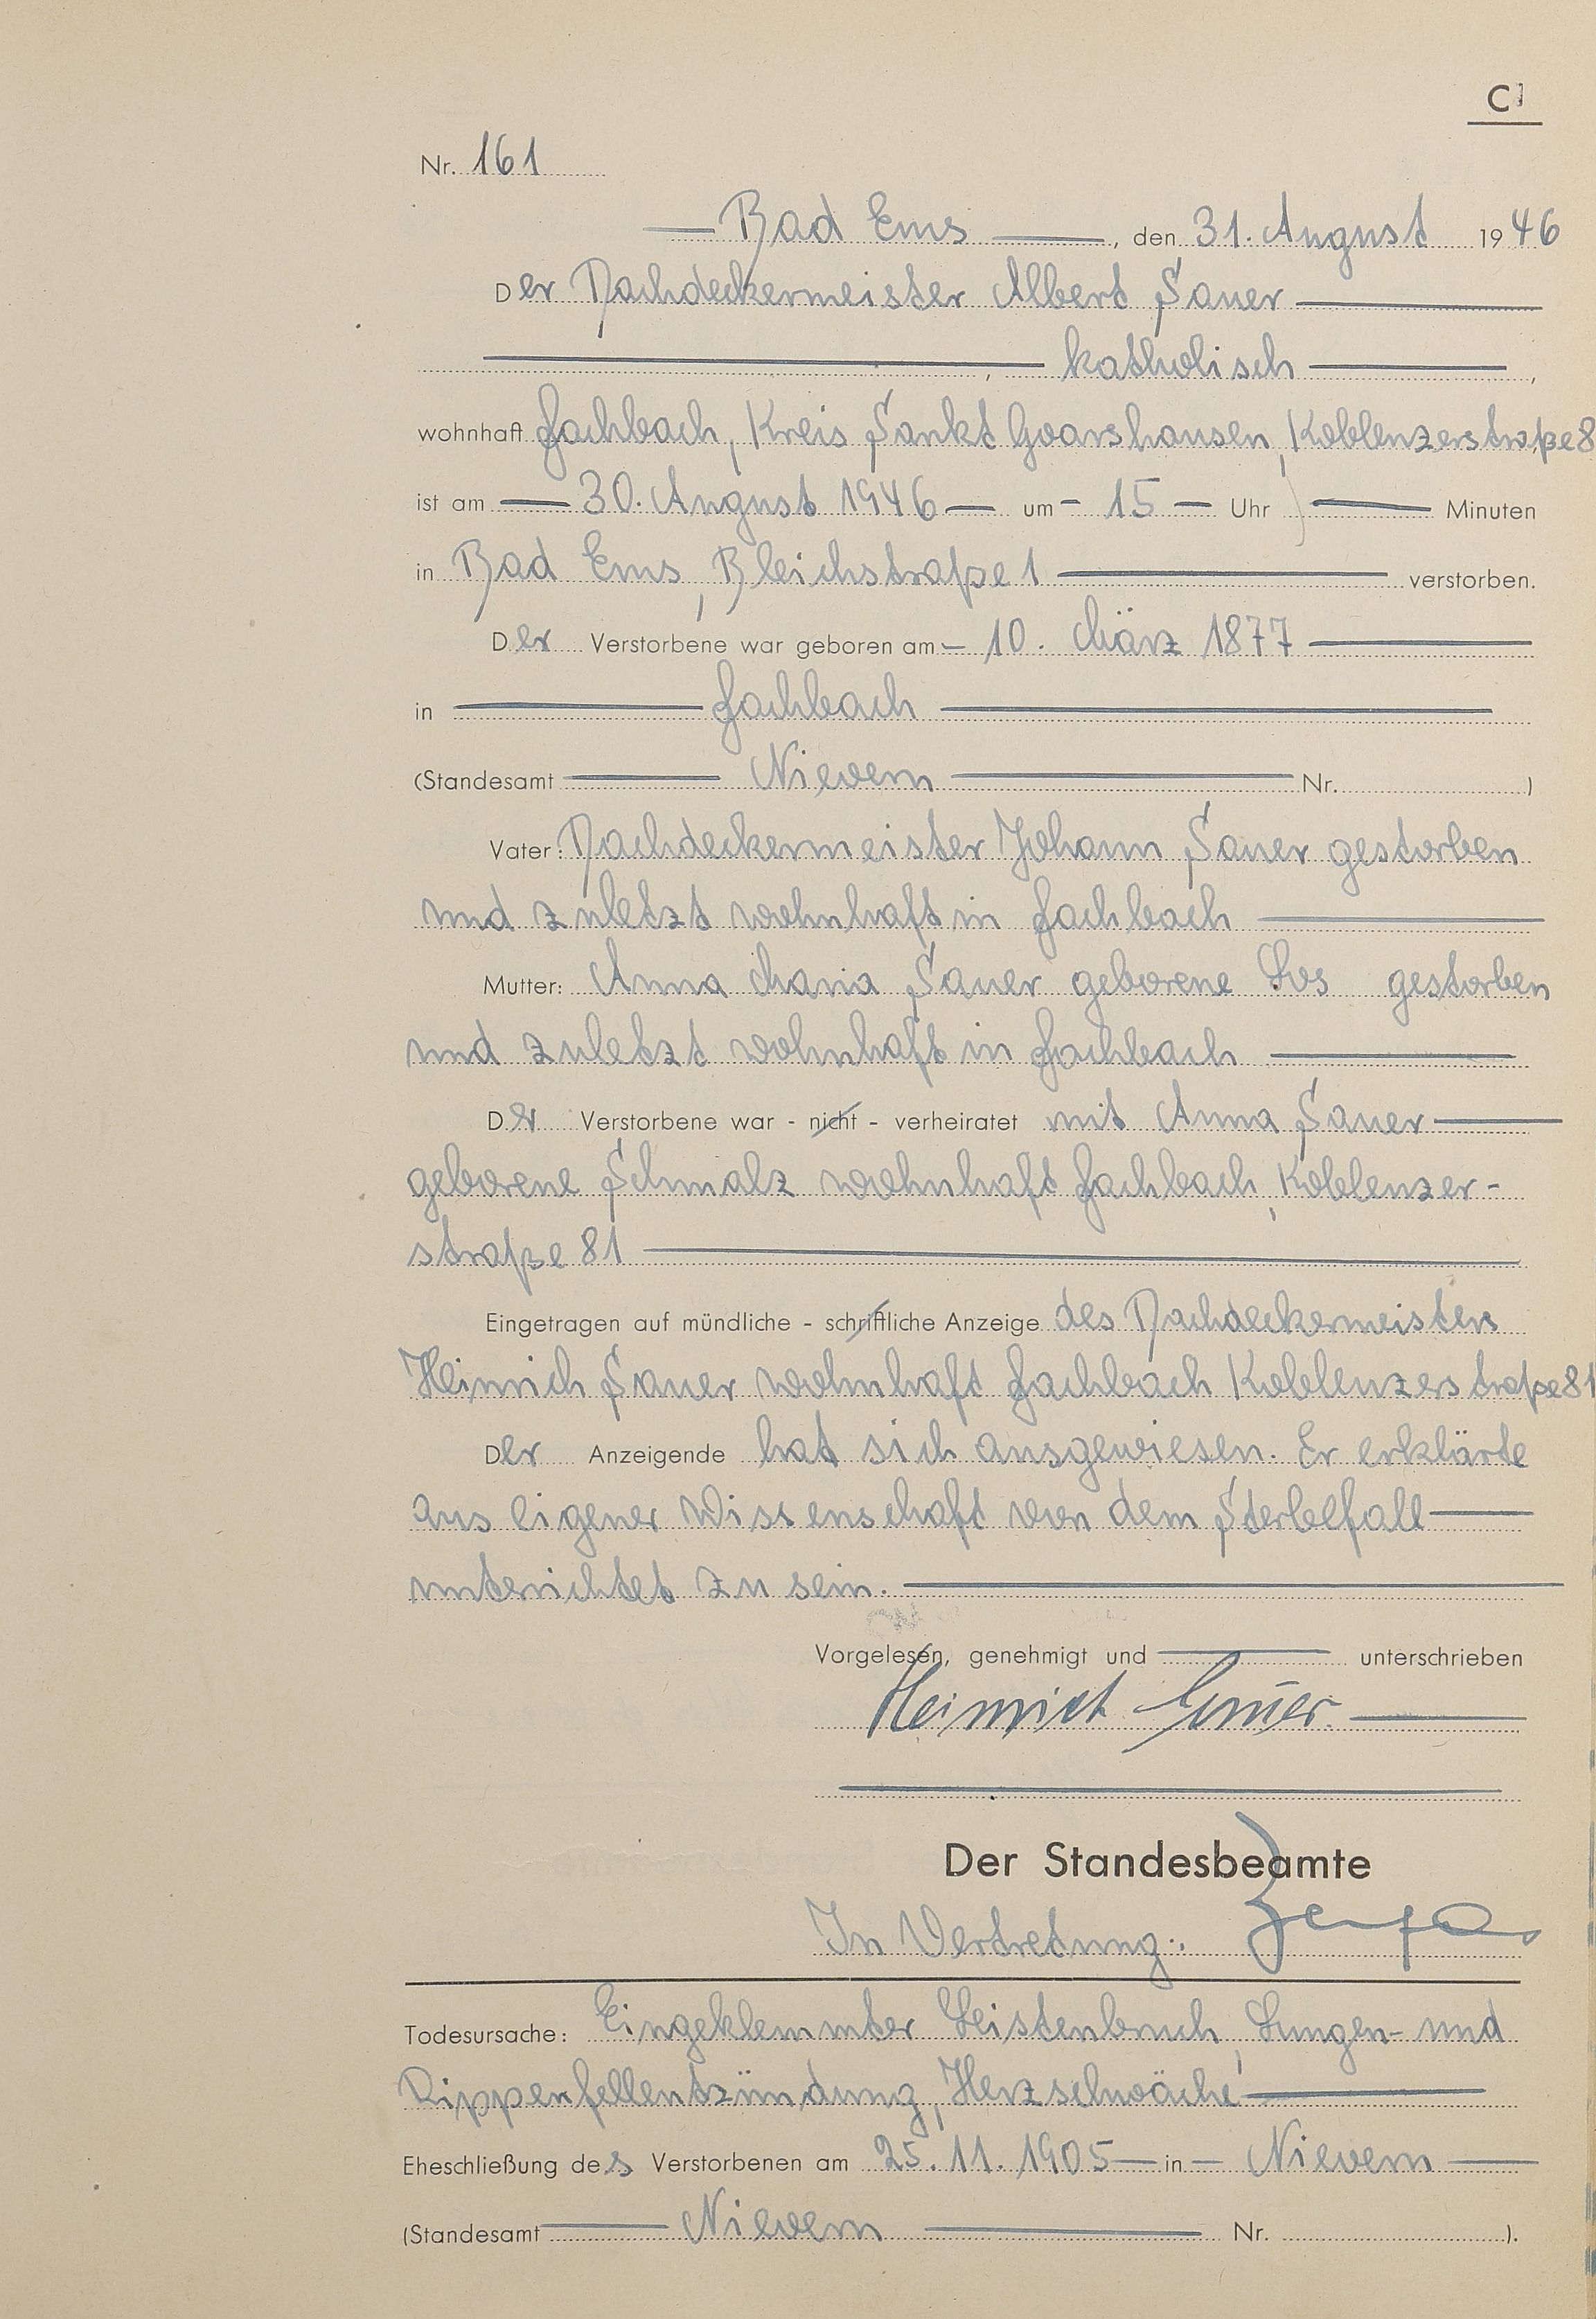 C
Nr. 161
Bad Ems, den 31. August 1946
Der Dachdeckermeister Albert Sauer
, katholisch,
wohnhaft Fachbach, Kreis Sankt Goarshausen, Koblenzerstraße 8
ist am 30. August 1946 um 15 Uhr Minuten
in Bad Ems, Bleichstraße 1 verstorben.
Der Verstorbene war geboren am 10. März 1877
in Fachbach
(Standesamt Nievern Nr. )
Vater: Dachdeckermeister Johann Sauer gestorben
und zuletzt wohnhaft in Fachbach
Mutter: Anna Maria Sauer geborene Los gestorben
und zuletzt wohnhaft in Fachbach
Der Verstorbene war - nicht - verheiratet mit Anna Sauer
geborene Schmalz wohnhaft Fachbach, Koblenzer-
straße 81
Eingetragen auf mündliche - schriftliche Anzeige des Dachdeckermeisters
Heinrich Sauer wohnhaft Fachbach Koblenzerstraße 81
Der Anzeigende hat sich ausgewiesen. Er erklärte
aus eigener Wissenschaft von dem Sterbefall
unterichtet zu sein.
Vorgelesen, genehmigt und unterschrieben
Heinrich Sauer.
Der Standesbeamte
In Vertretung:
Todesursache: Eingeklemmter Leistenbruch, Lungen- und
Rippenfellentzündung, Herzschwäche
Eheschließung des Verstorbenen am 25.11.1905 in Nievern
(Standesamt Nievern Nr. ).